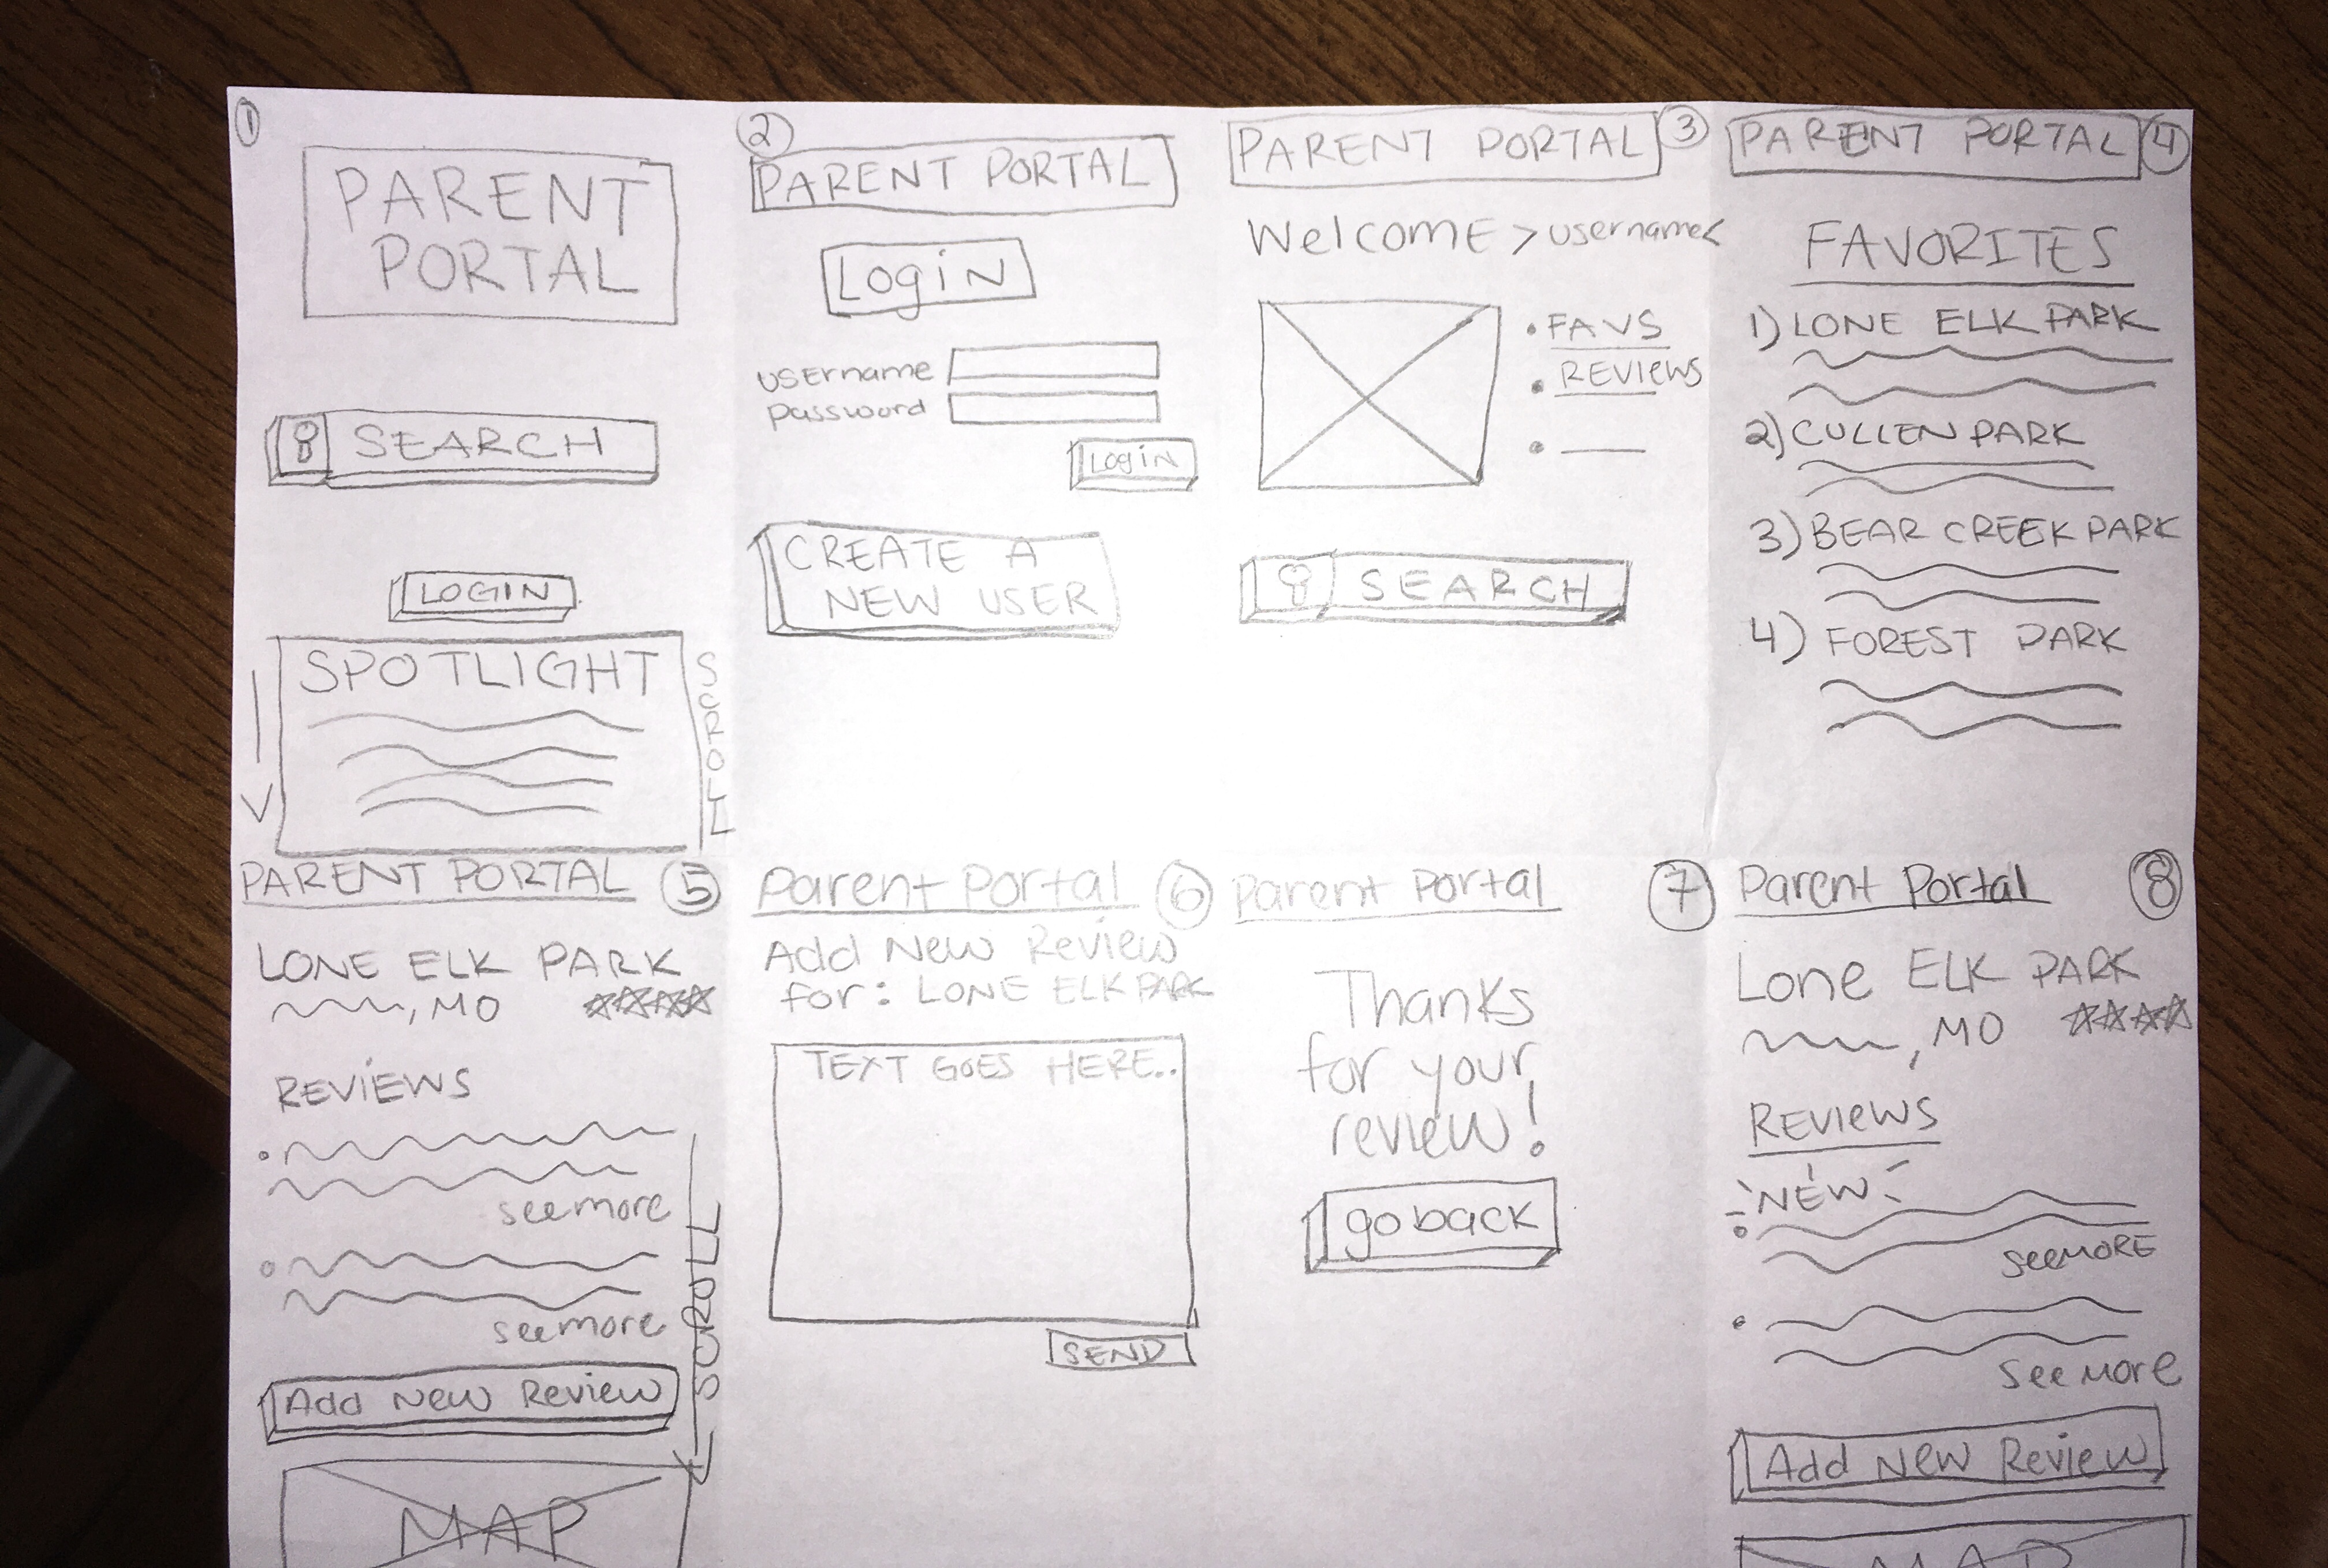 1
PARENT
PORTAL
SEARCH
LOGIN
SPOTLIGHT
SCROLL
2
PARENT PORTAL
Login
username
password
Login
CREATE A
NEW USER
PARENT PORTAL 3
Welcome >username<
• FAVS
• REVIEWS
•
SEARCH
PARENT PORTAL 4
FAVORITES
1) LONE ELK PARK
2) CULLEN PARK
3) BEAR CREEK PARK
4) FOREST PARK
PARENT PORTAL 5
LONE ELK PARK
, MO
REVIEWS
see more
see more
SCROLL
Add New Review
MAP
Parent Portal 6
Add New Review
for: LONE ELK PARK
TEXT GOES HERE..
SEND
Parent Portal 7
Thanks
for your
review!
go back
Parent Portal 8
Lone ELK PARK
, MO
REVIEWS
NEW
see MORE
See More
Add New Review
MAP